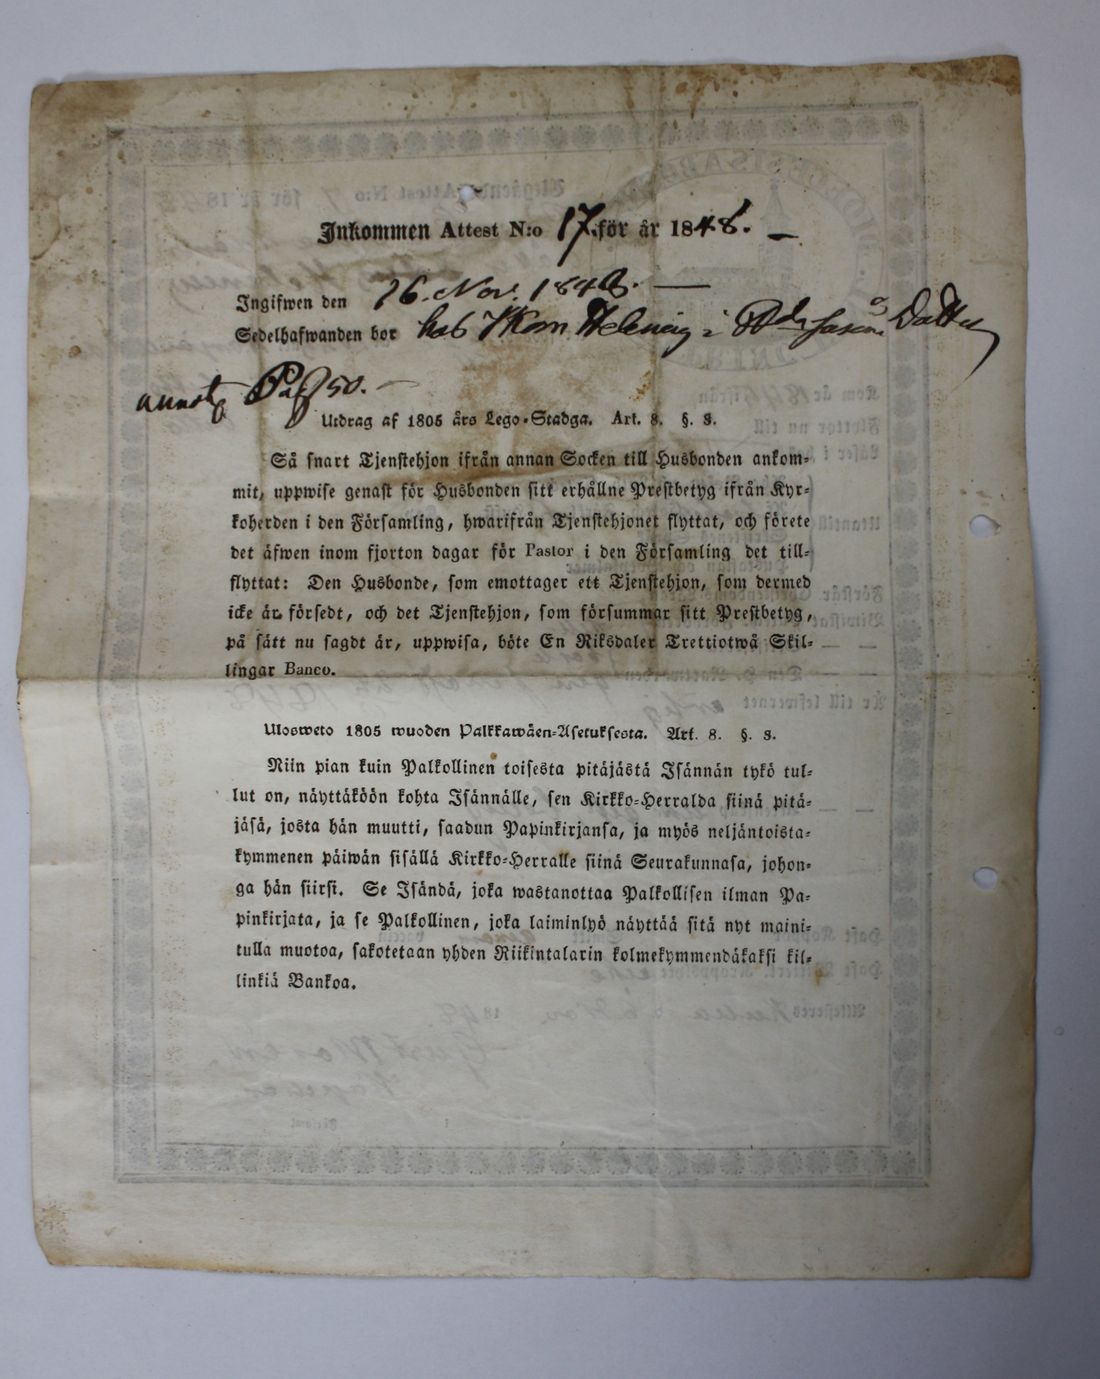 Inkommen Attest N:o 17. för år 1848. —
Ingifwen den 16. Nov. 1848. —
Sedelhafwanden bor hos i
Pag 50. —
Utdrag af 1805 års Lego-Stadga. Art. 8. §. 3.
Så snart Tjenstehjon ifrån annan Socken till Husbonden ankom-
mit, uppwise genast för Husbonden sitt erhållne Prestbetyg ifrån Kyr-
koherden i den Församling, hwarifrån Tjenstehjonet flyttat, och förete
det äfwen inom fjorton dagar för Pastor i den Församling det till-
flyttat: Den Husbonde, som emottager ett Tjenstehjon, som dermed
icke är försedt, och det Tjenstehjon, som försummar sitt Prestbetyg,
på sätt nu sagdt är, uppwisa, böte En Riksdaler Trettiotwå Skil-
lingar Banco.
Ulosweto 1805 wuoden Palkkawäen-Asetuksesta. Art. 8. §. 3.
Niin pian kuin Palkollinen toisesta pitäjästä Isännän tykö tul-
lut on, näyttäköön kohta Isännälle, sen Kirkko-Herralda siinä pitä-
jäsä, josta hän muutti, saadun Papinkirjansa, ja myös neljäntoista-
kymmenen päiwän sisällä Kirkko-Herralle siinä Seurakunnasa, johon-
ga hän siirsi. Se Isändä, joka wastanottaa Palkollisen ilman Pa-
pinkirjata, ja se Palkollinen, joka laiminlyö näyttää sitä nyt maini-
tulla muotoa, sakotetaan yhden Riikintalarin kolmekymmendäkaksi kil-
linkiä Bankoa.